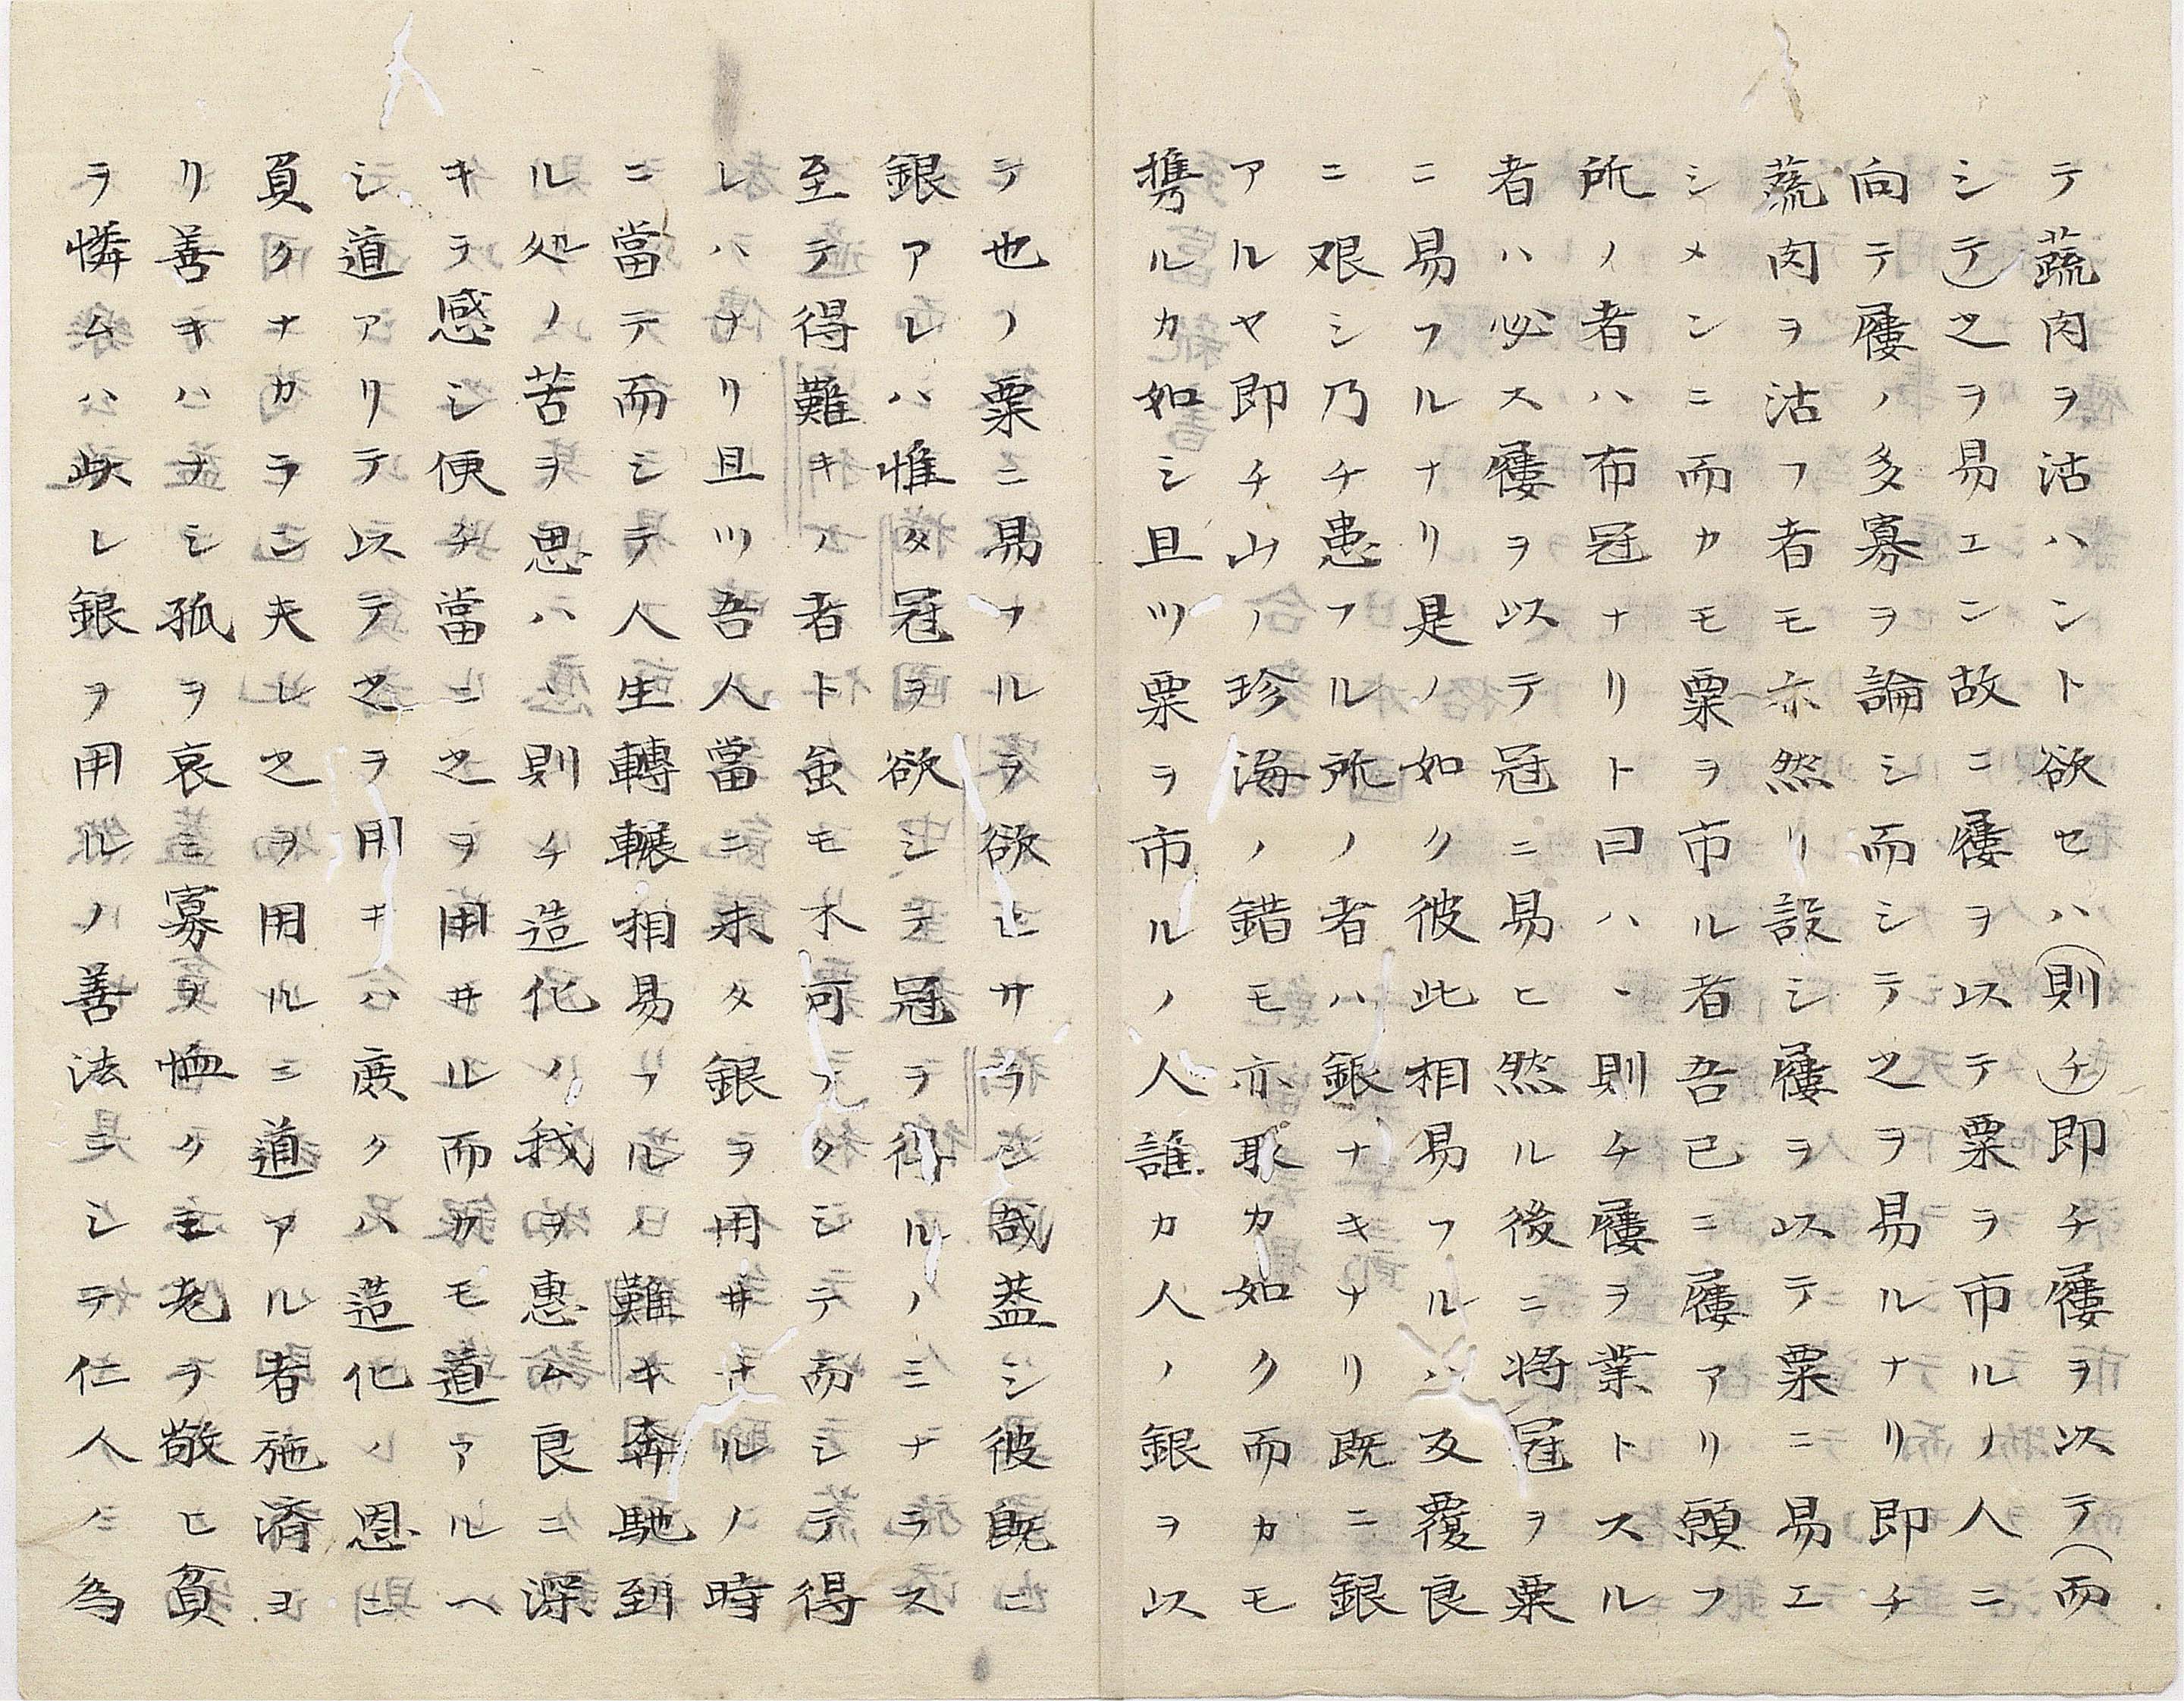 テ蔬肉ヲ沽ハント欲セハ(則チ)即チ屨ヲ以テ(而
シテ)之ヲ易エン故ニ屨ヲ以テ粟ヲ市ルノ人ニ
向テ屨ノ多寡ヲ論シ而シテ之ヲ易ルナリ即チ
蔬肉ヲ沽フ者モ亦然リ設シ屨ヲ以テ粟ニ易エ
シメンニ而カモ粟ヲ市ル者吾已ニ屨アリ願フ
所ノ者ハ布冠ナリト曰ハヽ則チ屨ヲ業トスル
者ハ必ス屨ヲ以テ冠ニ易ヒ然ル後ニ將冠ヲ粟
ニ易フルナリ是ノ如ク彼此相易フルハ反覆良
ニ艰シ乃チ患フル所ノ者ハ銀ナキナリ既ニ銀
アルヤ即チ山ノ珍海ノ錯モ亦取カ如ク而カモ
携ルカ如シ且ツ粟ヲ市ルノ人誰カ人ノ銀ヲ以
テ也ノ粟ニ易フルヲ欲セサラン哉葢シ彼既ニ
銀アレハ惟タ冠ヲ欲シテ冠ヲ得ルノミナラス
至テ得難キノ者ト虽モ不可ナクシテ而シテ得
レハナリ且ツ吾人當ニ未タ銀ヲ用井サルノ時
ニ當テ而シテ人生轉輾相易フルノ難キ奔馳到
ル処ノ苦ヲ思ハヽ則チ造化ノ我ヲ惠ム良ニ深
キヲ感シ便チ當ニ之ヲ用井ル而カモ道アルヘ
シ道アリテ以テ之ヲ用キハ庻クハ造化ノ恩ニ
負クナカラン夫レ之ヲ用ルニ道アル者施濟ヨ
リ善キハナシ孤ヲ哀ミ寡ヲ恤ク老ヲ敬ヒ貧
ヲ憐ムハ此レ銀ヲ用ルノ善法ニシテ仁人ノミ為